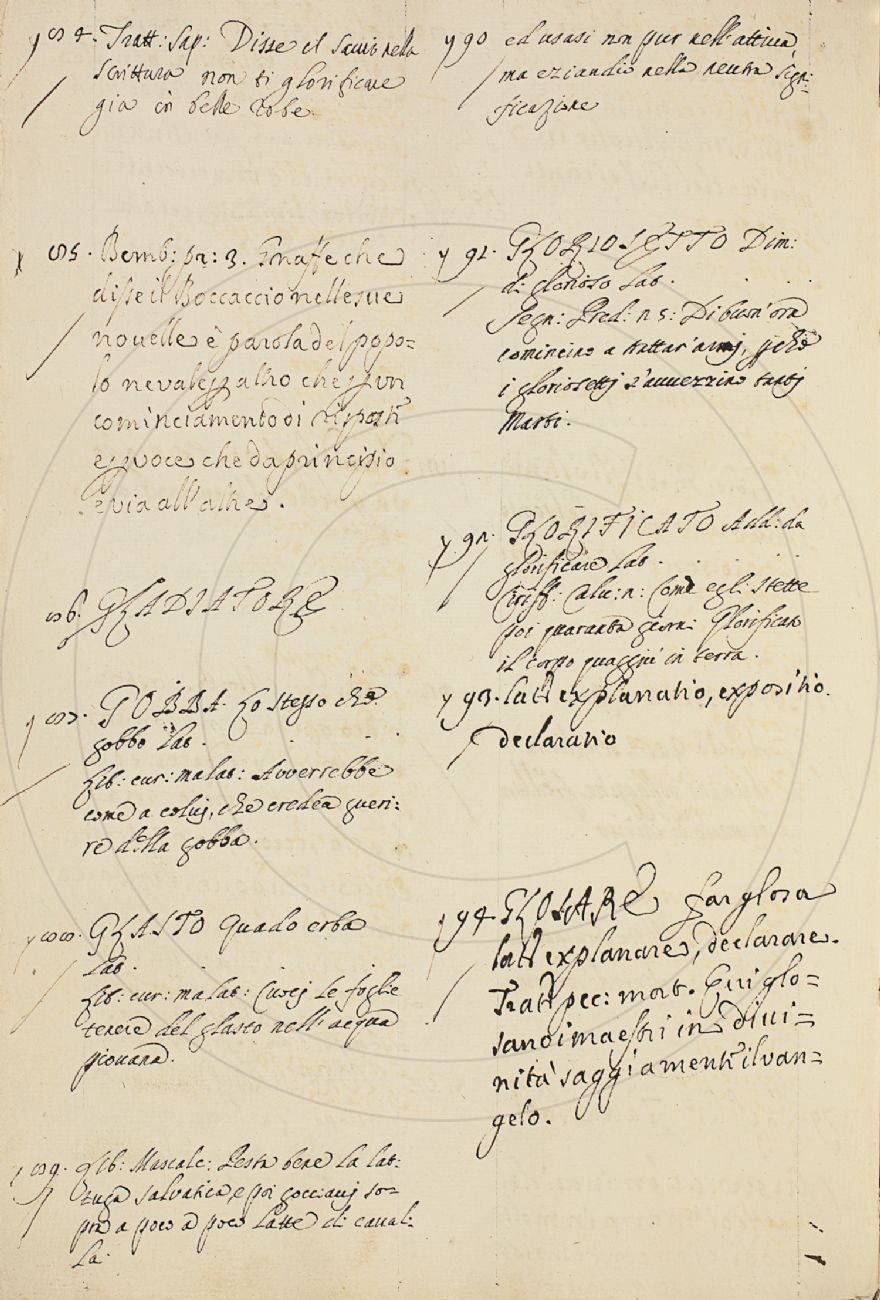 84. Tratt: Sap: Disse il savio nella
scrittura non ti glorificare
gia in belle robe.
85. Bemb: pr: 3. Gnaffe che
disse il Boccaccio nelle sue
novelle è parola del popo=
lo ne vale
cominciamento di risposta
e voce che da principio
e via all'altre.
86. GLADIATORE
87. GOBBA. Lo stesso che
gobbo Lab.
Lib: cur: malat: Avverrebbe
come a colui, che credea gueri:
re della gobba.
88. GLASTO Guado erba
Lab.
Lib: cur: malat: Cuoci le foglie
tenere del glasto nell'acqua
piovana.
89. Lib: Mascalc: Pesta bene la lat:
tuga salvatica, e poi gocciavi so=
pra a poco a poco latte di caval:
la.
90 ed usasi non pur nell'attiva,
ma eziandio nella neutra signi:
ficazione
91. GLORIOSETTO Dim:
di glorioso Lab.
Segn: Pred: n 5: Di buon'ora
comincino a trattar'armi, pchè
i gloriosetti s'avvezzino tanti
Marti.
GLORIFICATO Add: da
glorificare Lab.
Ciriff: Calv: n: Come egli stette
poi quaranta giorni Glorificato
il corpo quaggiù in terra.
93. latt explanatio, expositio.
declaratio
94 GLOSARE Far glosa
latt explanare, declarare.
Tratt pec: mort. Qui glo=
sano i maestri in divi=
nità saggiamente il van=
gelo.